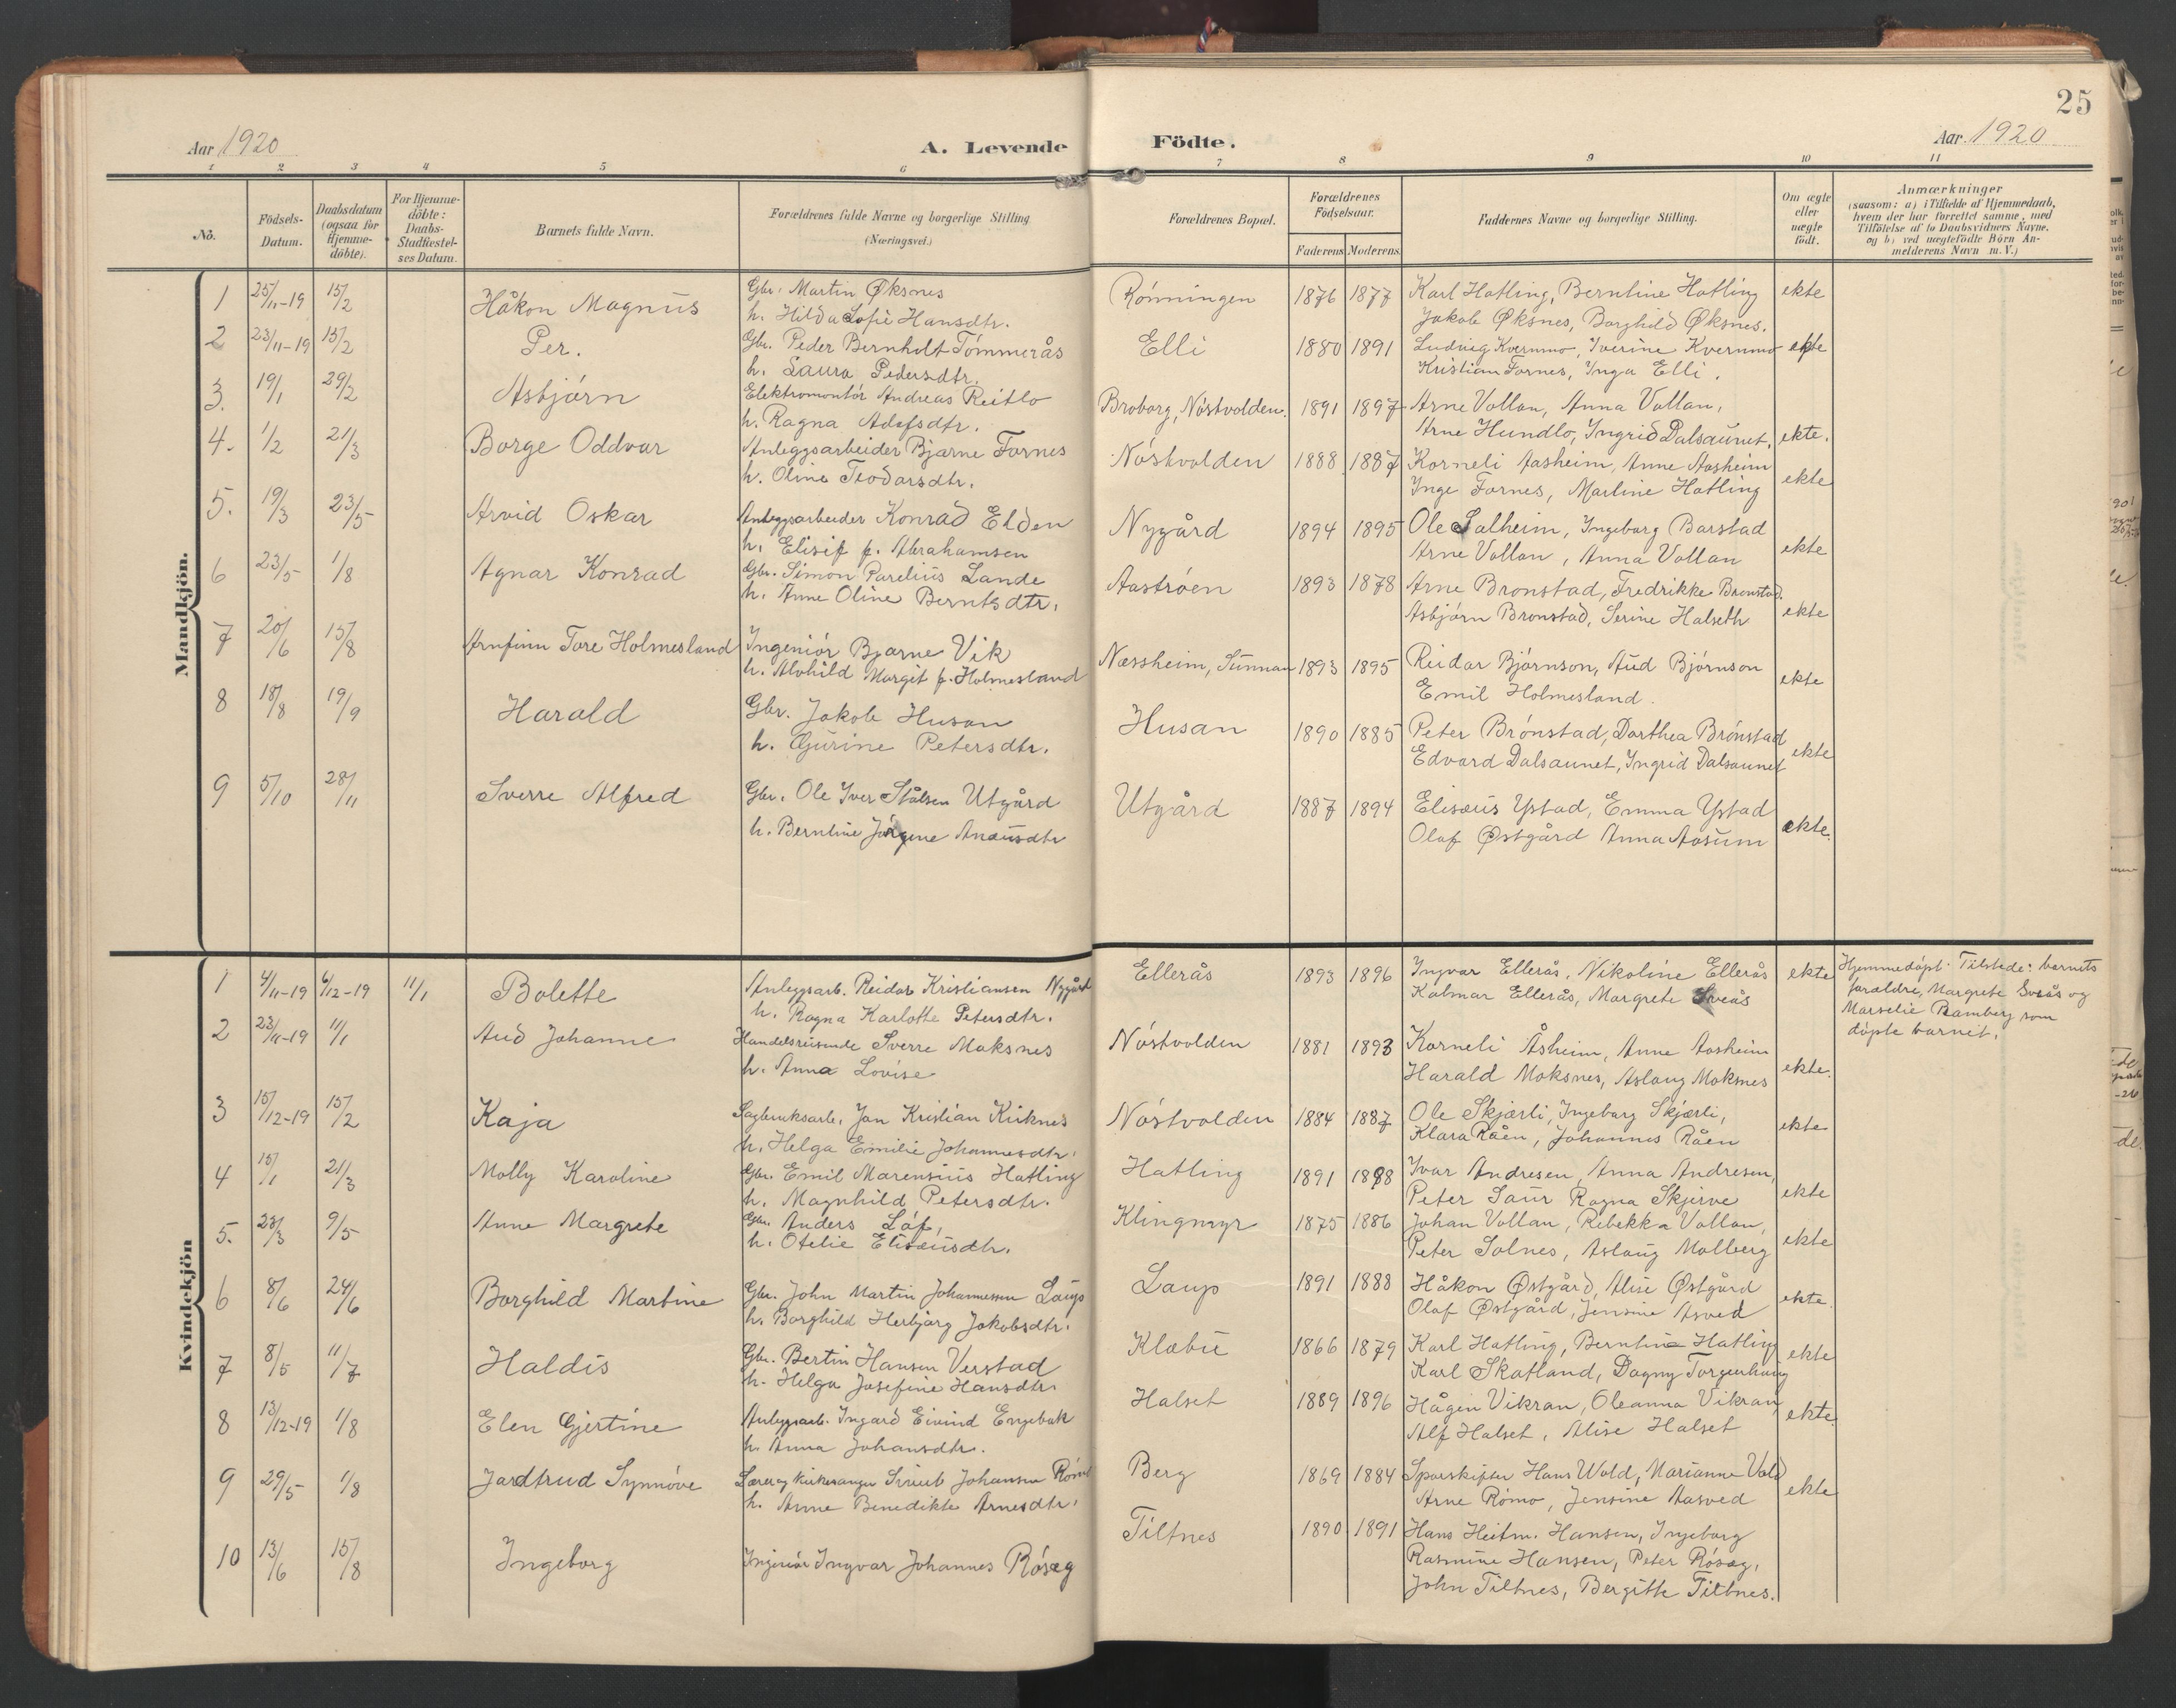 25
Aar 1920
A. Levende
Födte.
Aar 1920
1 2 3 4 5 6 7 8 9 10 11
No.
Födsels-Datum.
Daabsdatum (ogsaa for Hjemme-döbte).
For Hjemme-döbte: Daabs-Stadfæstel-ses Datum.
Barnets fulde Navn.
Forældrenes fulde Navne og borgerlige Stilling (Næringsvei.)
Forældrenes Bopæl.
Forældrenes Födselsaar.
Faderens Moderens
Faddernes Navne og borgerlige Stilling.
Om ægte eller uægte födt.
Anmærkninger
(saasom: a) i Tilfælde af Hjemmedaab,
hvem der har forrettet samme, med
Tilföielse af to Daabsvidners Navne.
og b) ved uægtefödte Börn An-
melderens Navn m. V.)
Mandkjön.
1 25/11-19 15/2 Håkon Magnus Gbr. Martin Øksnes Rönningen 1876 1877 Karl Hatling, Berntine Hatling ekte
h. Hilda Sofie Hansdtr. Jakob Øksnes, Borghild Øksnes.
2 23/11-19 15/2 Per. Gbr. Peder Bernholt Tömmerås Elli 1880 1891 Ludvig Kvernmo, Iverine Kvernmo ekte
h. Laura Pedersdtr. Kristian Fornes, Inga Elli.
3. 19/1 29/2 Asbjörn Elektromontör Andreas Reitlo Broborg, Nöstvolden. 1891 1897 Arne Vollan, Anna Vollan,
h. Ragna Adofsdtr. Arne Hundlo, Ingrid Dalsaunet, ekte.
4. 1/2 21/3 Borge Oddvar Anleggsarbeider Bjarne Fornes Nöstvolden 1888 1887 Korneli Aasheim, Anne Aasheim
h. Oline Teodorsdtr. Inge Fornes, Martine Hatling ekte
5. 19/3 23/5 Arvid Oskar Anleggsarbeider Konrad Elden Nygård 1894 1895 Ole Salheim, Ingeborg Barstad
h. Elisif f. Abrahamsen Arne Vollan, Anna Vollan ekte
6 23/5 1/8 Agnar Konrad Gbr. Simon Parelius Lande Aaströen 1893 1878 Arne Bronstad, Fredrikke Bronstad.
h. Anne Oline Berntsdtr. Asbjörn Bronstad, Serine Halseth ekte
7 20/6 15/8 Arnfinn Tore Holmesland Ingeniör Bjarne Vik Næssheim, Sunnan 1893 1895 Reidar Björnson, Aud Björnson
h. Alvhild Margit f. Holmesland Emil Holmesland. ekte
8 18/8 19/9 Harald Gbr. Jakob Husan Husan 1890 1885 Peter Brönstad, Dorthea Brönstad
h. Gurine Petersdtr. Edvard Dalsaunet, Ingrid Dalsaunet ekte
9 5/10 28/11 Sverre Alfred Gbr. Ole Iver Stålsen Utgård Utgård 1887 1894 Elisæus Ystad, Emma Ystad
h. Berntine Jörgine Anæusdtr Olaf Østgård Anna Aasum ekte.
Kvindekjön
1 4/11-19 6/12-19 11/1 Bolette Anleggsarb. Reidar Kristiansen Nygård Ellerås 1893 1896 Ingvar Ellerås, Nikoline Ellerås ekte Hjemmedöpt. Tilstede: barnets
h. Ragna Karlotte Petersdtr. Kalmar Ellerås, Margrete Sveås forældre, Margrete Sveås og
Marselie Ramberg som
döpte barnet.
2 23/11-19 11/1 Aud Johanne Handelsreisende Sverre Moksnes Nöstvolden 1881 1893 Korneli Åsheim, Anne Aasheim
h. Anna Lovise Harald Moksnes, Aslaug Moksnes ekte.
3 15/12-19 15/2 Kaja Sagbruksarb. Jan Kristian Kirknes Nöstvolden 1884 1887 Ole Skjærli, Ingeborg Skjærli,
h. Helga Emilie Johannesdtr. Klara Råen, Johannes Råen ekte
4 15/1 21/3 Molly Karoline Gbr. Emil Marensius Hatling Hatling 1891 1898 Ivar Andresen, Anna Andresen,
h. Magnhild Petersdtr. Peter Saur Ragna Skjerve ekte
5. 23/3 9/5 Anne Margrete Gbr. Anders Löf, Klingmyr 1875 1886 Johan Vollan, Rebekka Vollan,
h. Otelie Elisæusdtr. Peter Solnes, Aslaug Molberg ekte
6 8/6 24/6 Borghild Martine Gbr. John Martin Johannessen Laup Laup 1891 1888 Håkon Østgård, Alise Østgård
h. Borghild Herbjörg Jakobsdtr. Olaf Østgård, Jensine Asved ekte.
7 8/5 11/7 Haldis Gbr. Bertin Hansen Verstad Klæbu 1866 1879 Karl Hatling, Berntine Hatling ekte
h. Helga Josefine Hansdtr. Karl Skatland, Dagny Torgeirhaug
8 13/12-19 1/8 Elen Gjertine Anleggsarb. Ingard Eivind Engebak Halset 1889 1896 Hågen Vikran, Oleanna Vikran,
h. Anna Johansdtr. Alf Halset, Alise Halset ekte.
9 29/5 1/8 Jardtrud Synnöve Lærer og kirkesanger Johansen Römo Berg 1869 1884 Hans Wold, Marianne Vold
h. Anne Benedikte Arnesdtr. Arne Römo, Jensine Aasved ekte
10 13/6 15/8 Ingeborg Ingeniör Ingvar Johannes Röseg Tiltnes 1890 1891 Hans Heitm. Hansen, Ingeborg
Rasmine Hansen, Peter Röseg,
John Tiltnes, Bergitte Tiltnes.